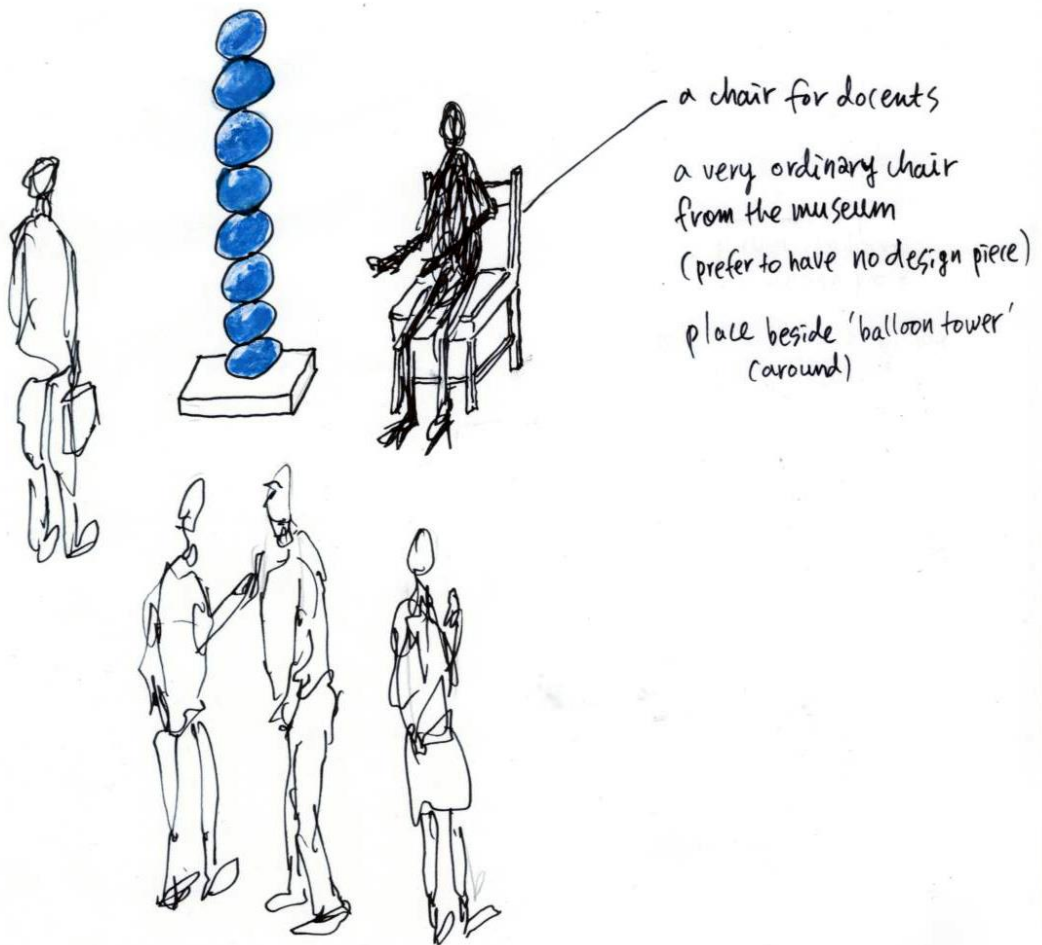 a chair for docents
a very ordinary chair
from the museum
(prefer to have no design piece)
place beside 'balloon tower'
(around)